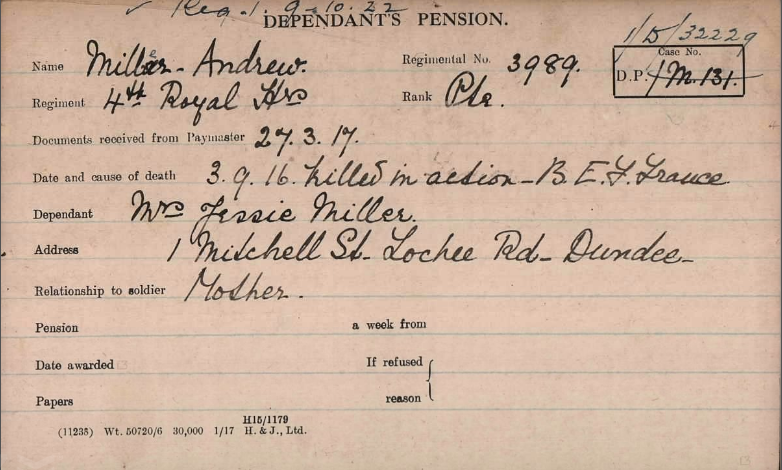 ✓ Reg. 1. 9-10.22
DEPENDANT'S PENSION.
1/D/32229
Name Miller - Andrew. Regimental No. 3989. Case No.
D.P. 1/M.131.
Regiment 4th Royal Hrs Rank Pte.
Documents received from Paymaster 27.3.17.
Date and cause of death 3.9.16. Killed in action - B.E.F. France
Dependant Mrs Jessie Miller.
Address 1 Mitchell St. Lochee Rd - Dundee -
Relationship to soldier Mother.
Pension a week from
Date awarded If refused
Papers reason
H15/1179
(11235) Wt. 50720/6 30,000 1/17 H. & J., Ltd.